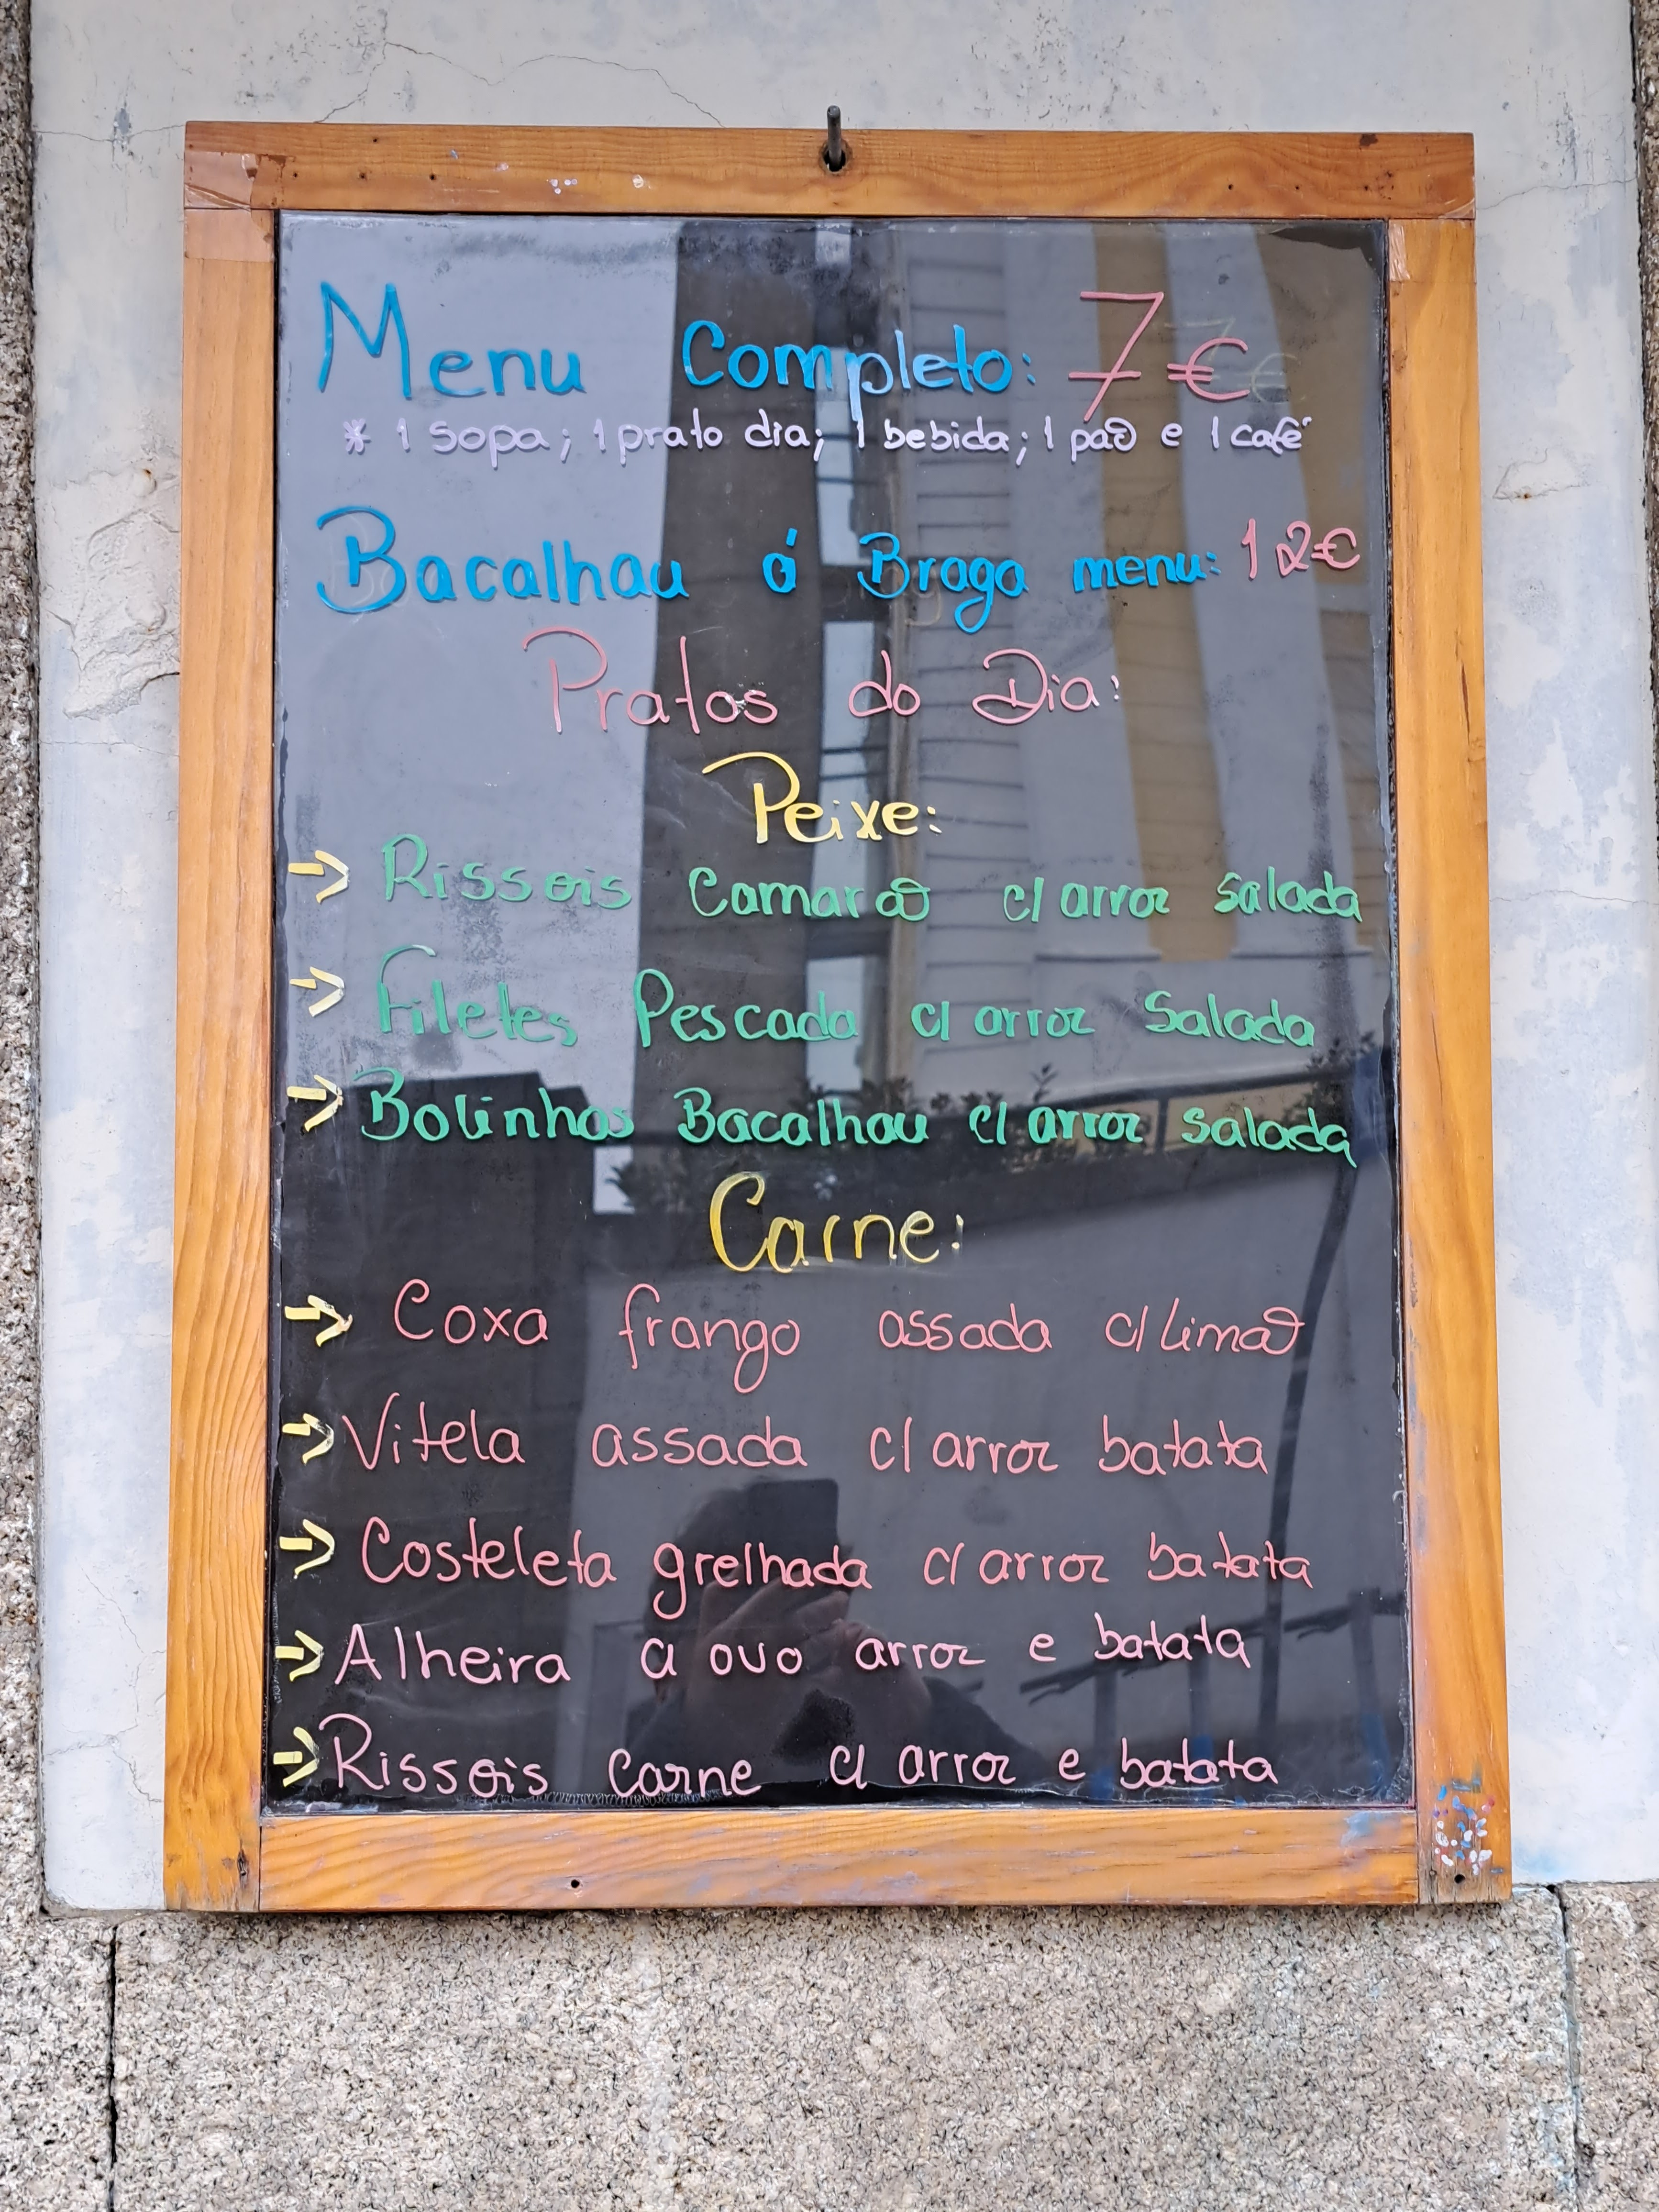 Menu Completo: 7€
* 1 sopa; 1 prato dia; 1 bebida; 1 pão e 1 café
Bacalhau á Braga menu: 12€
Pratos do Dia:
Peixe:
→ Rissois Camarão c/ arroz salada
→ Filetes Pescada c/ arroz Salada
→ Bolinhos Bacalhau c/ arroz salada
Carne:
→ Coxa frango assada c/ limão
→ Vitela assada c/ arroz batata
→ Costeleta grelhada c/ arroz batata
→ Alheira c/ ovo arroz e batata
→ Rissois Carne c/ arroz e batata